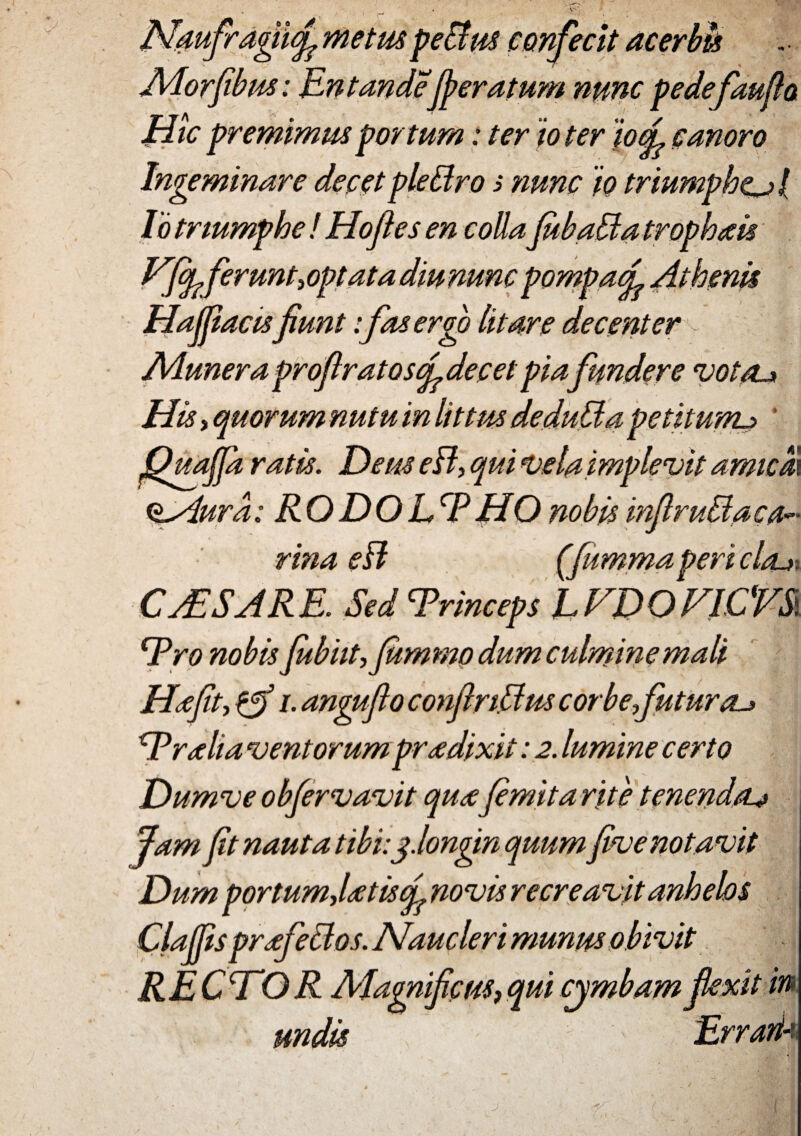 Naufragiiq; metus pectus confecit acerbis
Morsibus: En tandẽ speratum nunc pede fausto
Hic premimus portum: ter io ter ioq; canoro
Ingeminare decet plectro; nunc io triumphe!
Io triumphe! Hostes en colla subacta trophæis
Vsq; ferunt, optata diu nunc pompaq; Athenis
Hassiacis fiunt: fas ergò litare decenter
Munera prostratosq; decet pia fundere vota
His, quorum nutu in littus deducta petitum
Quassa ratis. Deus est, qui vela implevit amicâ
Aurâ: RODOLPHO nobis instructa ca-
rina est (summa pericla)
CÆSARE. Sed Princeps LVDOVICVS
Pro nobis subiit, summo dum culmine mali
Hæsit, & 1. angusto constrictus corbe, futura
Prælia ventorum prædixit: 2. lumine certo
Dumve observavit quæ semita ritè tenenda
Jam sit nauta tibi: 3. longinquum sive notavit
Dum portum, lætisq; novis recreavit anhelos
Classis præfectos. Naucleri munus obivit
RECTOR Magnificus, qui cymbam flexit in
undis Erran-